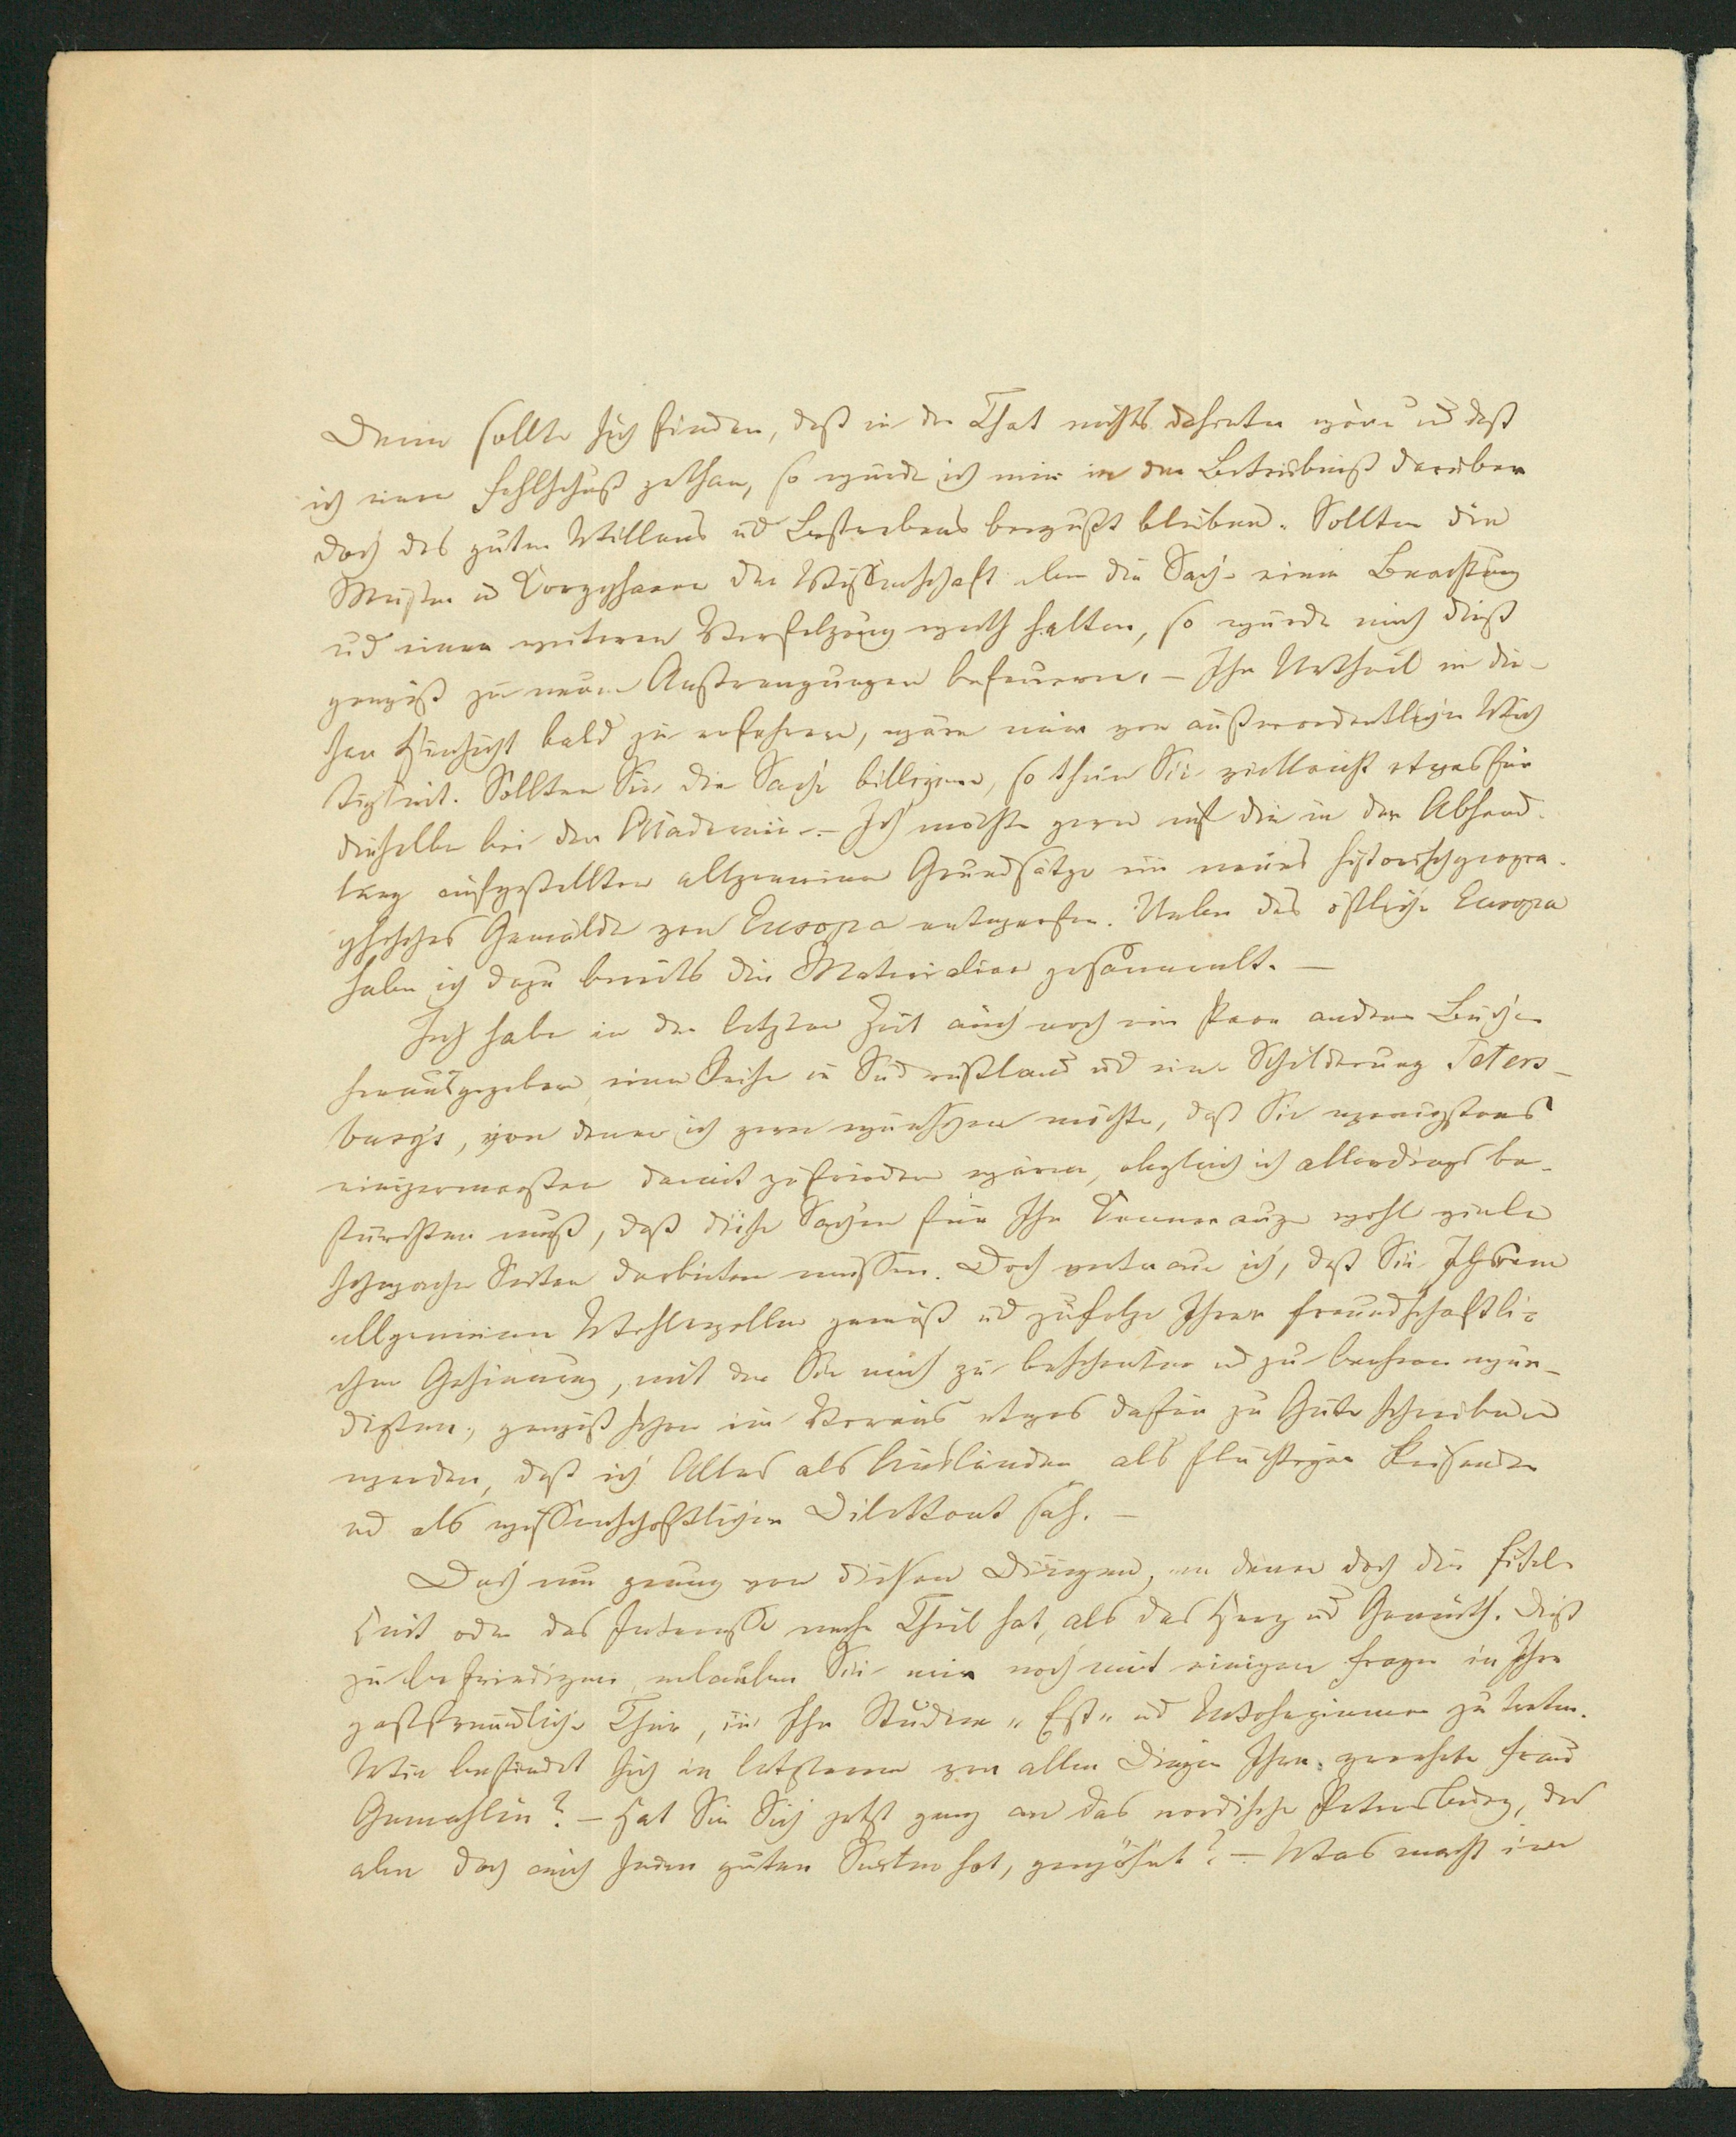 Denn sollte sich finden, daß in der That nichts dahinter wäre und daß
ich einen Fehlschuß gethan, so würde ich mir in der Betrübniß darüber
doch des guten Willens und Bestrebens bewußt bleiben. Sollten die
Meister und Coryphaeen der Wissenschaft aber die Sache einer Beachtung
und einer weiteren Verfolgung werth halten, so würde mich dieß
gewiß zu neuen Anstrengungen befeuern. – Ihr Urtheil in die-
ser Hinsicht bald zu erfahren, wäre mir von außerordentlicher Wich
tigkeit. Sollten Sie die Sache billigen, so thun Sie vielleicht etwas für
dieselbe bei der Academie. – Ich möchte gern auf die in der Abhand-
lung aufgestellten allgemeinen Grundsätze ein neues historischgeogra-
phisches Gemälde von Europa entwerfen. Ueber das östliche Europa
habe ich dazu bereits die Materialien gesammelt. –
Ich habe in der letzten Zeit auch noch ein Paar andere Bücher
herausgegeben, eine Reise in Südrußland und eine Schilderung Peters-
burg's, von denen ich gern wünschen möchte, daß Sie wenigstens
einigermaßen damit zufrieden wären, obgleich ich allerdings be-
fürchten muß, daß diese Sachen für Ihr Kennerauge wohl viele
schwache Seiten darbieten müssen. Doch vertraue ich, daß Sie Ihrem
allgemeinen Wohlwollen gemäß und zufolge Ihrer freundschaftli-
chen Gesinnung, mit der Sie mich zu beschenken und zu beehren wür-
digten, gewiß schon im Voraus etwas dafür zu Gute schreiben
werden, daß ich Alles als Ausländer, als flüchtiger Reisender
und als wissenschaftlicher Dilettant sah. –
Doch nun genug von diesen Dingen, an denen doch die Eitel-
keit oder das Interesse mehr Theil hat, als das Herz und Gemüth. Dieß
zu befriedigen, erlauben Sie mir noch mit einigen Fragen in Ihre
gastfreundliche Thür, in Ihr Studier- Eß- und Wohnzimmer zu treten.
Wie befindet sich in letzterem vor allen Dingen Ihre geehrte Frau
Gemahlin? – Hat Sie Sich jetzt ganz an das nordische Petersburg, das
aber doch auch seine guten Seiten hat, gewöhnt? – Was macht